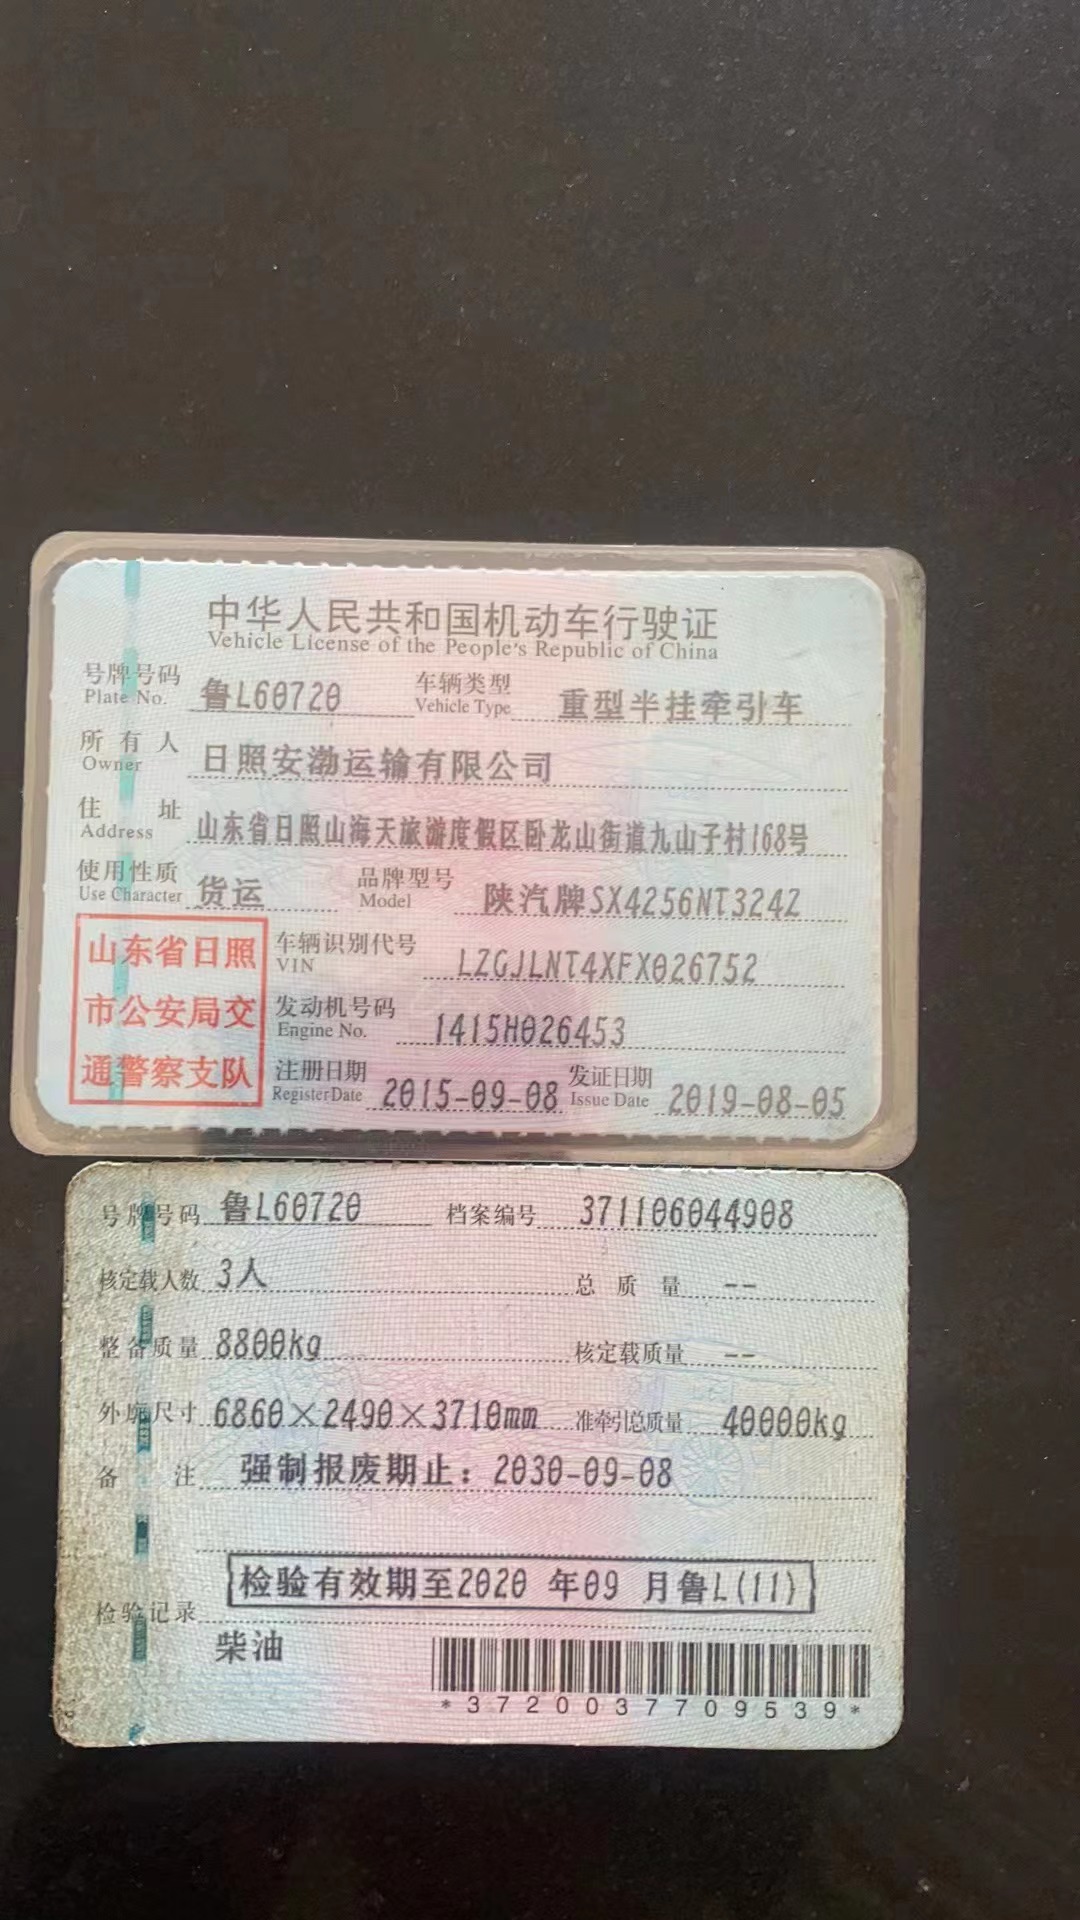 中华人民共和国机动车行驶证
Vehicle License of the People's Republic of China
号牌号码 鲁L60720 车辆类型 重型半挂牵引车
Plate No. Vehicle Type
所有人 日照安渤运输有限公司
Owner
住址 山东省日照山海天旅游度假区卧龙山街道九山子村168号
Address
使用性质 货运 品牌型号 陕汽牌SX4256NT324Z
Use Character Model
山东省日照
市公安局交
通警察支队
车辆识别代号 LZGJLNT4XFX026752
VIN
发动机号码 1415H026453
Engine No.
注册日期 2015-09-08 发证日期 2019-08-05
Register Date Issue Date
号牌号码 鲁L60720 档案编号 371106044908
核定载人数 3人 总质量 --
整备质量 8800kg 核定载质量 --
外廓尺寸 6860×2490×3710mm 准牵引总质量 40000kg
备注 强制报废期止：2030-09-08
检验有效期至2020 年09 月鲁L(11)
检验记录
柴油
*3720037709539*